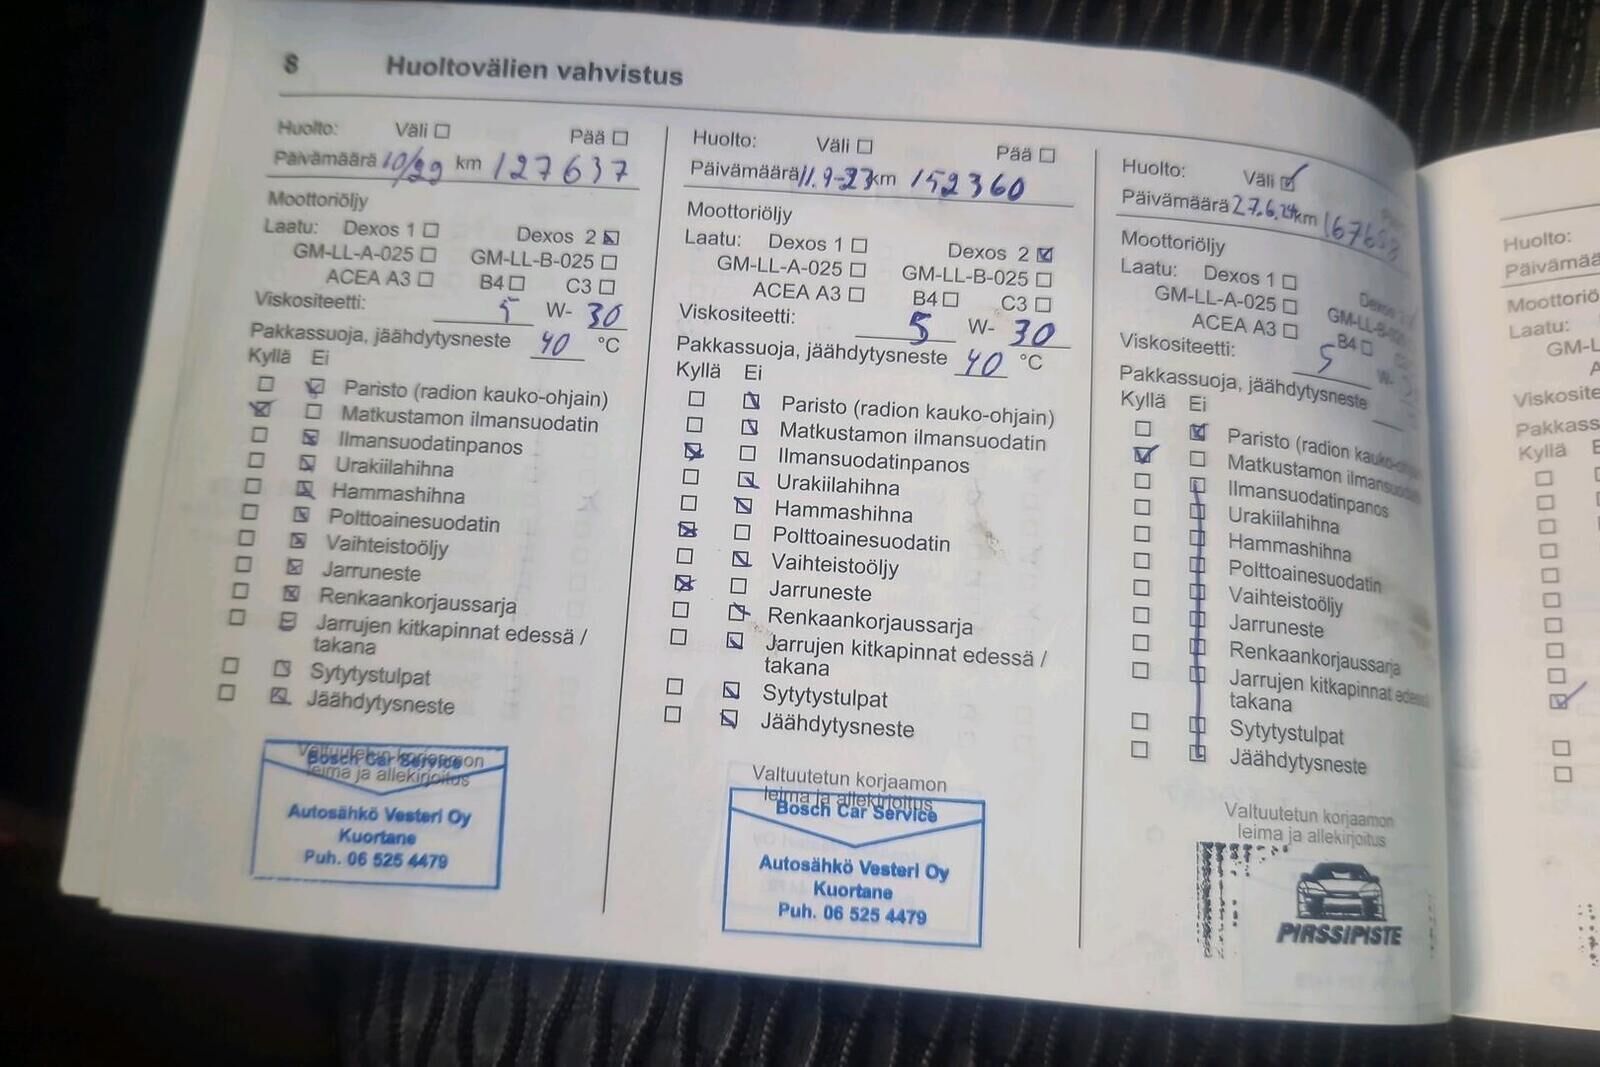 8 Huoltovälien vahvistus
Huolto: Väli Pää
Päivämäärä 10/22 km 127637
Moottoriöljy
Laatu: Dexos 1 Dexos 2
GM-LL-A-025 GM-LL-B-025
ACEA A3 B4 C3
Viskositeetti: 5 W- 30
Pakkassuoja, jäähdytysneste 40 °C
Kyllä Ei
Paristo (radion kauko-ohjain)
Matkustamon ilmansuodatin
Ilmansuodatinpanos
Urakiilahihna
Hammashihna
Polttoainesuodatin
Vaihteistoöljy
Jarruneste
Renkaankorjaussarja
Jarrujen kitkapinnat edessä /
takana
Sytytystulpat
Jäähdytysneste
Valtuutetun korjaamon
leima ja allekirjoitus
Bosch Car Service
Autosähkö Vesteri Oy
Kuortane
Puh. 06 525 4479
Huolto: Väli Pää
Päivämäärä 11.9-23 km 152360
Moottoriöljy
Laatu: Dexos 1 Dexos 2
GM-LL-A-025 GM-LL-B-025
ACEA A3 B4 C3
Viskositeetti: 5 W- 30
Pakkassuoja, jäähdytysneste 40 °C
Kyllä Ei
Paristo (radion kauko-ohjain)
Matkustamon ilmansuodatin
Ilmansuodatinpanos
Urakiilahihna
Hammashihna
Polttoainesuodatin
Vaihteistoöljy
Jarruneste
Renkaankorjaussarja
Jarrujen kitkapinnat edessä /
takana
Sytytystulpat
Jäähdytysneste
Valtuutetun korjaamon
leima ja allekirjoitus
Bosch Car Service
Autosähkö Vesteri Oy
Kuortane
Puh. 06 525 4479
Huolto: Väli Pää
Päivämäärä 27.6.24 km
Moottoriöljy
Laatu: Dexos 1 Dexos 2
GM-LL-A-025 GM-LL-B-025
ACEA A3 B4
Viskositeetti: 5 W-
Pakkassuoja, jäähdytysneste
Kyllä Ei
Paristo (radion kauko-ohjain)
Matkustamon ilmansuodatin
Ilmansuodatinpanos
Urakiilahihna
Hammashihna
Polttoainesuodatin
Vaihteistoöljy
Jarruneste
Renkaankorjaussarja
Jarrujen kitkapinnat edessä
takana
Sytytystulpat
Jäähdytysneste
Valtuutetun korjaamon
leima ja allekirjoitus
PIRSSIPISTE
Huolto:
Päivämää
Moottoriö
Laatu:
GM-L
A
Viskosite
Pakkass
Kyllä E